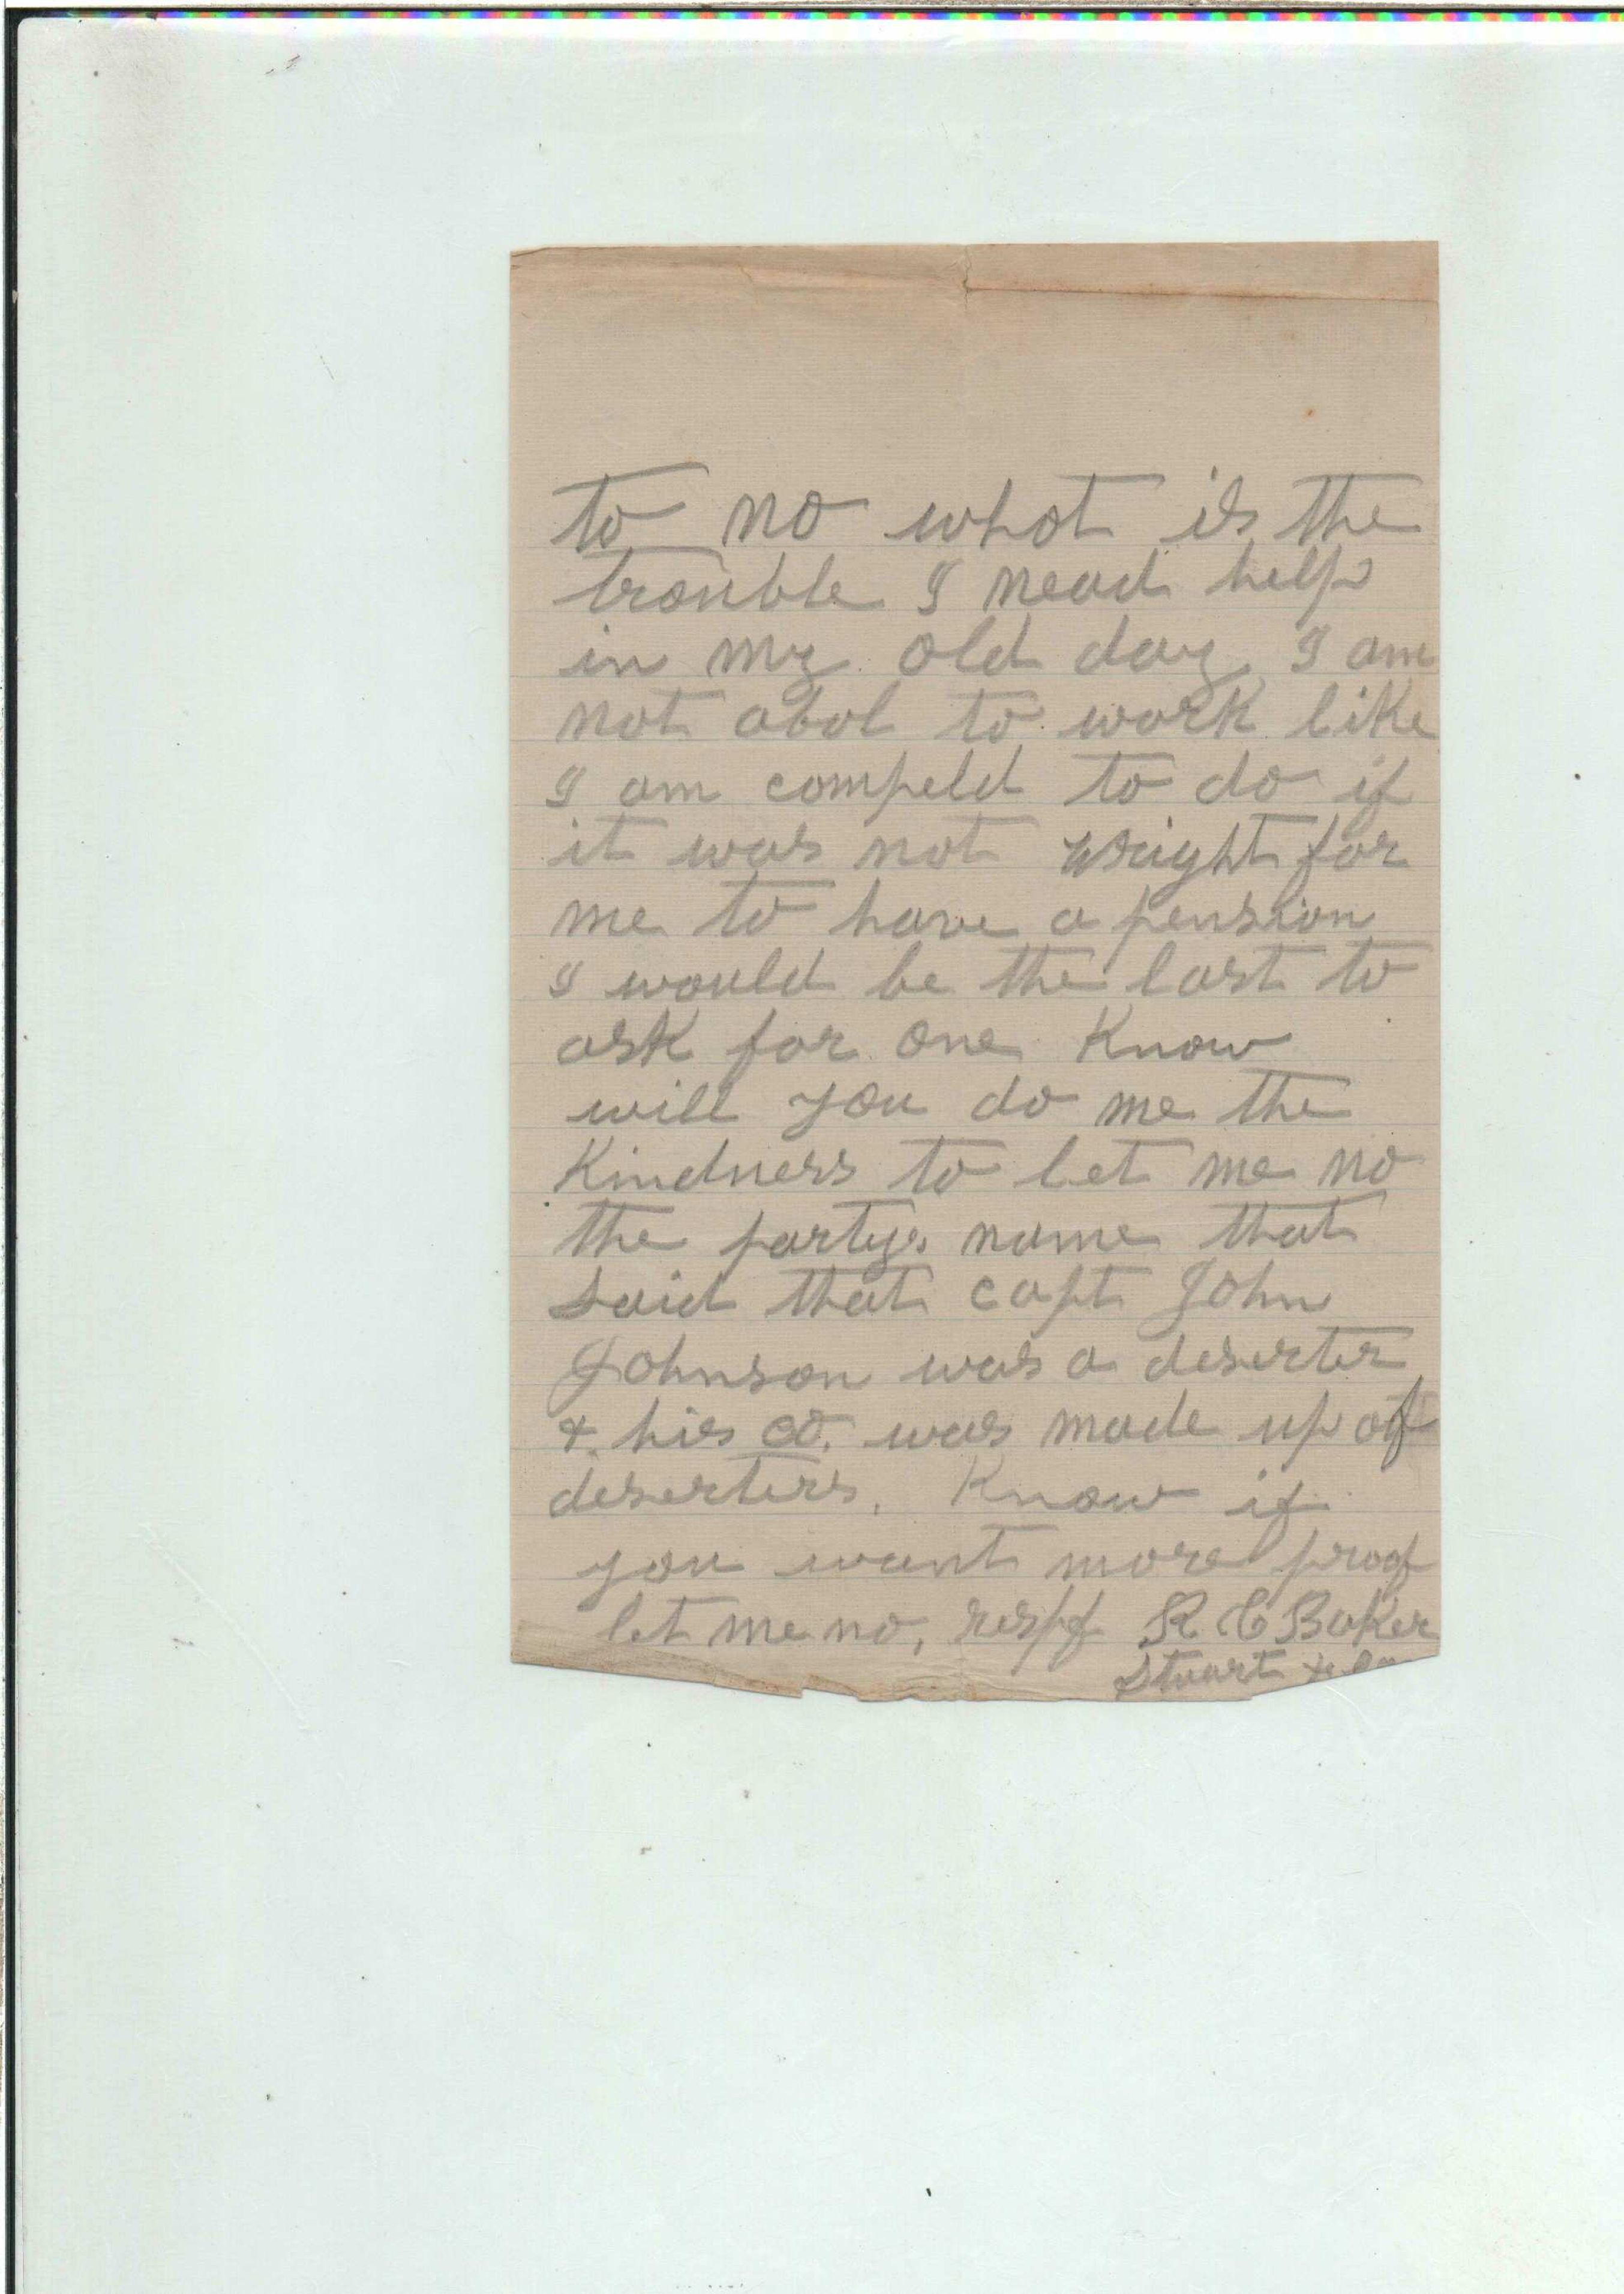 to no what is the
trouble I nead help
in my old day I am
not abol to work like
I am compeld to do if
it was not wright for
me to have a pension
I would be the last to
ask for one Know
will you do me the
Kindness to let me no
the partys name that
said that capt John
Johnson was a deserter
& his co. was made up of
deserters. Know if
you want more proof
let me no, respf R C Baker
Stuart